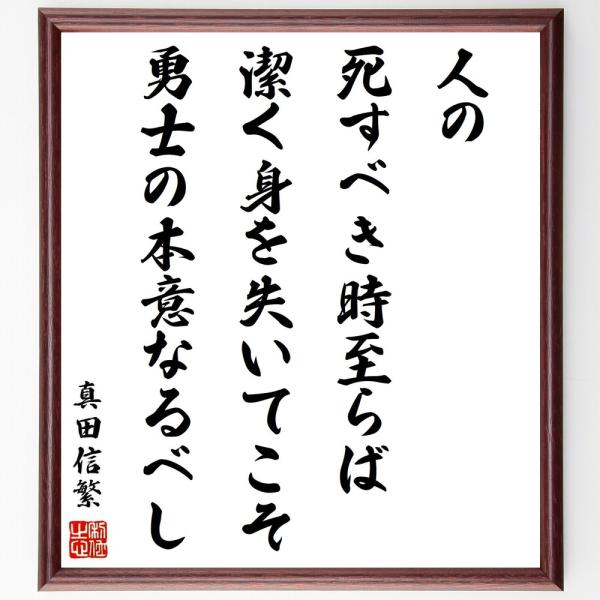 人の
死すべき時至らば
潔く身を失いてこそ
勇士の本意なるべし
真田信繁